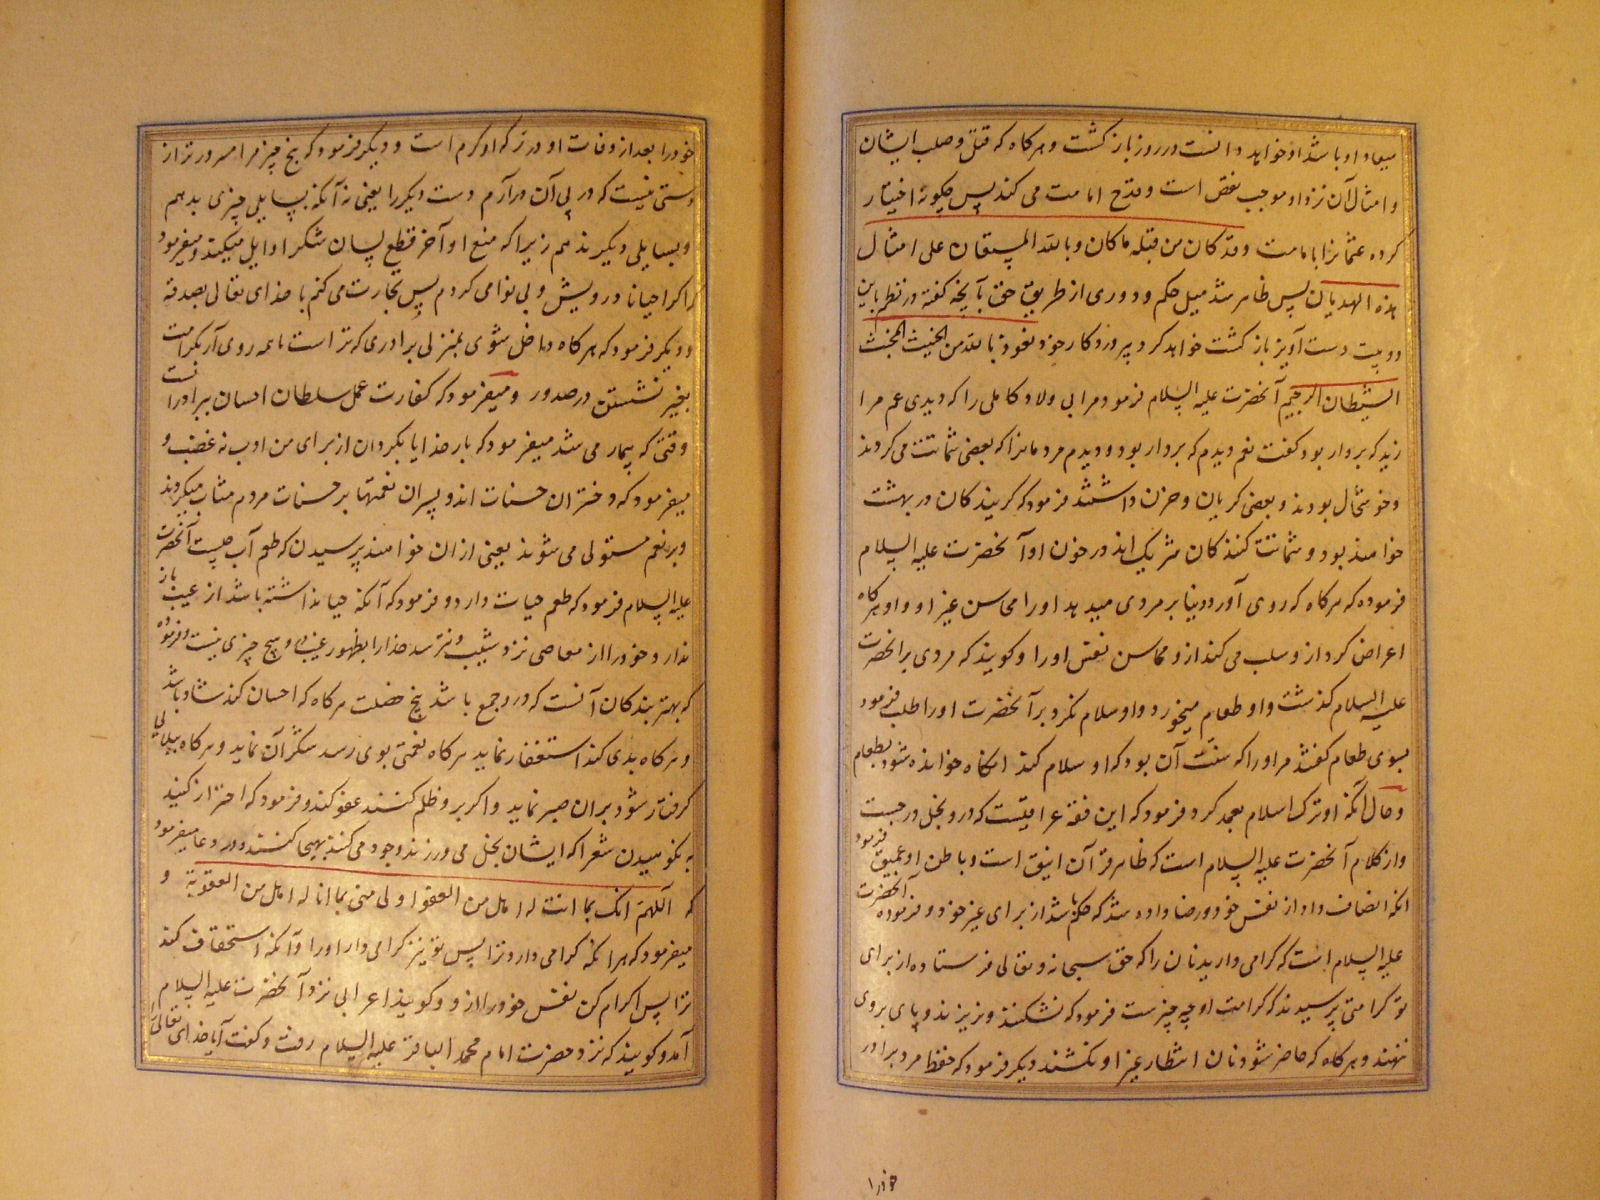 میعاد او باشد او خواهد دانست در روز بازگشت و هرگاه که قتل و صلب ایشان
و امثال آن نزد او موجب نقص است و قدح امامت می کند پس چگونه اختیار
کرده عثمانرا بامامت وقد کان من قبله ما کان و بالله المستعان علی امثال
هذه الهدیان پس ظاهر شد میل حکم و دوری از طریق حق بآنچه گفته در نظر باین
دو بیت دست آویز بازگشت خواهد کرد بپروردکار خود نعوذ بالله من الخبیث المخبث
الشیطان الرجیم آنحضرت علیه السلام فرمود مر ابی ولاد کاملی را که دیدی عم مرا
زید که بردار بود گفت نعم دیدم که بردار بود و دیدم مردمانرا که بعضی شماتت می کردند
و خوشحال بودند و بعضی گریان و حزن داشتند فرمود که گریندکان در بهشت
خواهند بود و شماتت کنندکان شریک اند در خون او آنحضرت علیه السلام
فرموده که هرگاه که روی آورد دنیا بر مردی میدهد او را محاسن غیر او و او هرگاه
اعراض کرد از و سلب می کند از و محاسن نفس او را و گویند که مردی بر آنحضرت
علیه السلام گذشت و او طعام میخورد و او سلام نکرد بر آنحضرت او را طلب فرمود
بسوی طعام گفتند مر او را که سنت آن بود که او سلام کند آنگاه خوانده شود بطعام
و حال آنکه او ترک سلام بعمد کرد فرمود که این فقه عراقیست که در و بخل درجست
و از کلام آنحضرت علیه السلام است که ظاهر قرآن انیق است و باطن او عمیق فرمود
آنکه انصاف داد از نفس خود و رضا داده شد که حکم باشد از برای غیر خود و فرموده آنحضرت
علیه السلام است که گرامی دارید نان را که حق سبحانه و تعالی فرستاده از برای
تو کرامتی پرسیدند که کرامت او چه چیزست فرمود که نشکنند و نریزند و پای بروی
ننهند و هرگاه که حاضر شود نان انتظار غیر او نکشند دیگر فرمود که حفظ مرد برادر
خود را
خود را بعد از وفات او در ترکه او کرم است و دیگر فرمود که هیچ چیز مرا مسرورتر از
دستی نیست که در پی آن در آرم دست دیگر را یعنی نه آنکه بسایل چیزی بدهم
و بسایلی دیگر ندهم زیرا که منع اواخر قطع لسان شکر اوایل میکند و میفرمود
را که احیانا درویش و بی نوا می کردم پس تجارت می کنم با خدای تعالی بصدقه
و دیگر فرمود که هرگاه داخل شوی بمنزلی برادری که تراست با همه روی آر بکرامت
بغیر نشستن در صدور و میفرمود که کفارت عمل سلطان احسان ببرادرانست
وقتی که بیمار می شد میفرمود که بار خدایا بگردان از برای من ادب نه غضب و
میفرمود که دختران حسنات اند و پسران نعمتها بر حسنات مردم مثاب میگردند
و بر نعم مسئولی می شوند بعینی از ان خواهند پرسیدن که طعم آب چیست آنحضرت
علیه السلام فرمود که طعم حیات دارد و فرمود که آنکه حیا نداشته باشد از عیب باز
ندارد خود را از معاصی نزد شیب و نترسد خدا را بظهور غیب در و هیچ چیزی نیست و فرموده
که بهتر بندکان آنست که در و جمع باشد پنج خصلت هرگاه که احسان کند شاد باشد
و هرگاه بدی کند استغفار نماید هرگاه نعمتی بوی رسد شکر آن نماید و هرگاه ببلائی
گرفتار شود بر ان صبر نماید و اگر بر و ظلم کنند عفو کند و فرمود که احتراز کنید
به نکوهیدن شعرا که ایشان بخل می ورزند و جود می کنند بهیجا کنند و در دعا میفرمود
که اللهم انک بما انت له اهل من العفو اولی منی بما انا له اهل من العقوبة و
میفرمود که هر انکه گرامی دارد ترا پس تو نیز گرامی دار او را و آنکه استخفاف کند
ترا پس اکرام کن نفس خود را از و و گویند اعرابی نزد آنحضرت علیه السلام
آمد و گویند که نزد حضرت امام محمد الباقر علیه السلام رفت و گفت آیا خدای تعالی